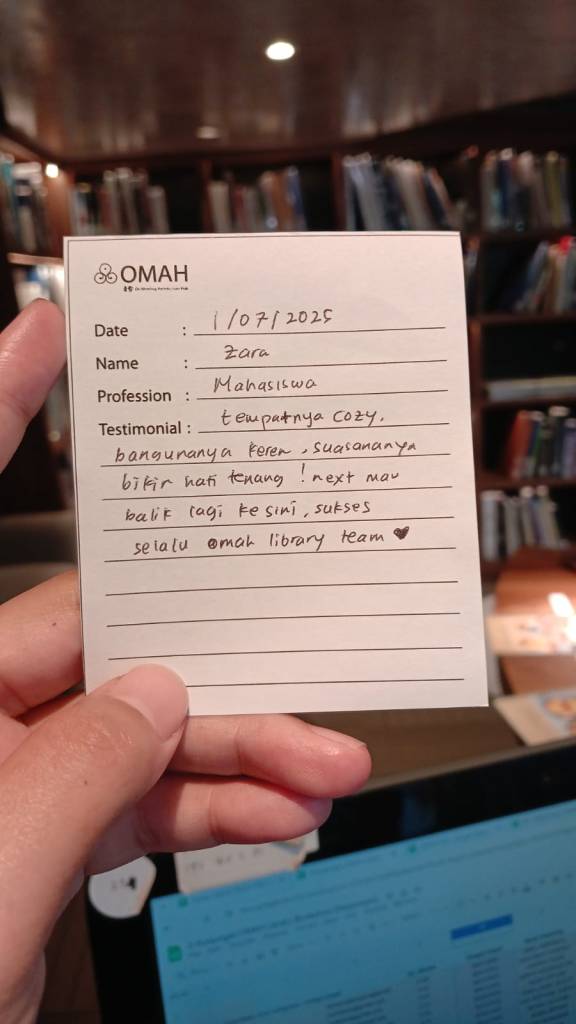 OMAH
Date : 1/07/2025
Name : Zara
Profession : Mahasiswa
Testimonial : tempatnya cozy,
bangunanya keren, suasananya
bikin hati tenang! next mau
balik lagi ke sini, sukses
selalu omah library team ♥